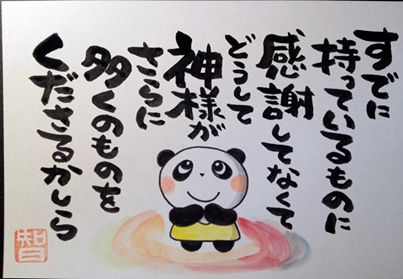 すでに
持っているものに
感謝してなくて
どうして
神様が
さらに
多くのものを
くださるかしら
智